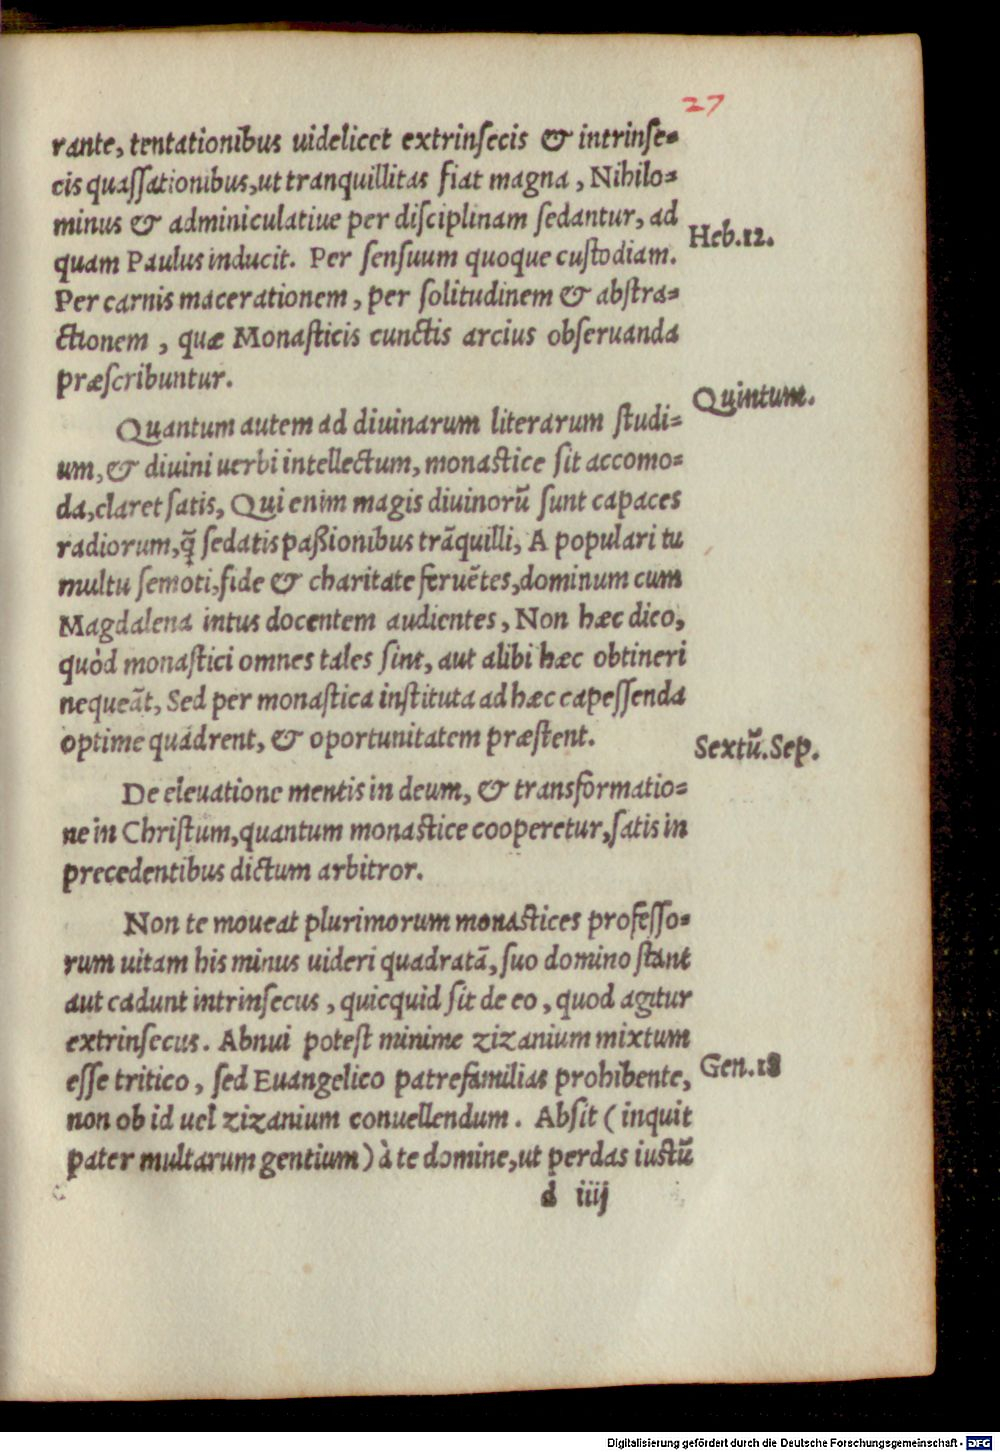 27
rante, tentationibus uidelicet extrinſecis & intrinſe=
cis quaſſationibus,ut tranquillitas fiat magna , Nihilo=
minus & adminiculatiue per diſciplinam ſedantur, ad
Heb.12.
quam Paulus inducit. Per ſenſuum quoque cuſtodiam.
Per carnis macerationem , per ſolitudinem & abſtra=
ctionem , quæ Monaſticis cunctis arcius obſeruanda
præſcribuntur.
Quintum.
Quantum autem ad diuinarum literarum ſtudi=
um, & diuini uerbi intellectum, monaſtice ſit accomo=
da,claret ſatis, Qui enim magis diuinorũ ſunt capaces
radiorum,q̃ ſedatis paßionibus trãquilli, A populari tu
multu ſemoti,fide & charitate feruẽtes,dominum cum
Magdalena intus docentem audientes , Non hæc dico,
quòd monaſtici omnes tales ſint, aut alibi hæc obtineri
nequeãt, Sed per monaſtica inſtituta ad hæc capeſſenda
optime quádrent, & oportunitatem præſtent.
Sextũ.Sep.
De eleuatione mentis in deum, & transformatio=
ne in Chriſtum,quantum monaſtice cooperetur,ſatis in
precedentibus dictum arbitror.
Non te moueat plurimorum monaſtices profeſſo=
rum uitam his minus uideri quadratã, ſuo domino ſtant
aut cadunt intrinſecus , quicquid ſit de eo , quod agitur
extrinſecus. Abnui poteſt minime zizanium mixtum
eſſe tritico , ſed Euangelico patrefamilias prohibente,
Gen.18
non ob id uel zizanium conuellendum . Abſit ( inquit
pater multarum gentium ) à te domine,ut perdas iuſtũ
d iiij
Digitalisierung gefördert durch die Deutsche Forschungsgemeinschaft - DFG